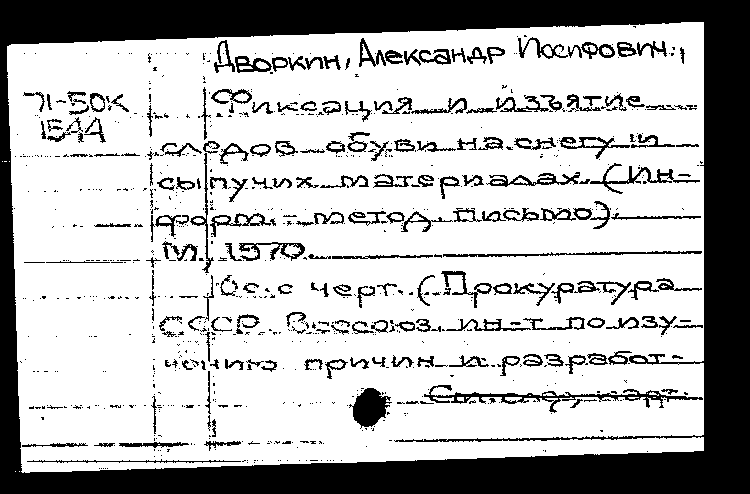 Дворкин, Александр Иосифович.,
71-50К
Фиксация и изъятие
следов обуви на снегу и
сыпучих материалах. (Ин-
форм.- метод. письмо).
М., 1970.
с. с черт. (Прокуратура
СССР. Всесоюз. ин-т по изу-
чению причин и разработ-
См. след. карт.